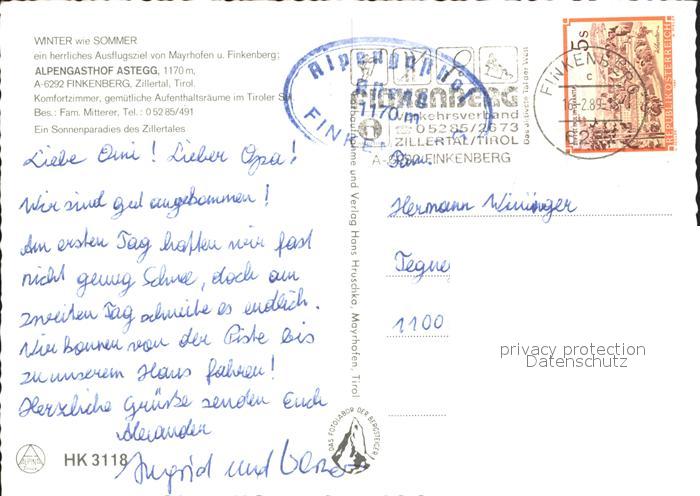 WINTER wie SOMMER
ein herrliches Ausflugsziel von Mayrhofen u. Finkenberg:
ALPENGASTHOF ASTEGG, 1170 m,
A-6292 FINKENBERG, Zillertal, Tirol.
Komfortzimmer, gemütliche Aufenthaltsräume im Tiroler
Bes.: Fam. Mitterer, Tel.: 0 52 85/491
Ein Sonnenparadies des Zillertales
Liebe Omi! Lieber Opa!
Wir sind gut angekommen!
Am ersten Tag hatten wir fast
nicht genug Schnee, doch am
zweiten Tag schneite es endlich.
Wir können von der Piste bis
zu unserem Haus fahren!
Herzliche Grüße senden Euch
Alexander
Ingrid und
HK 3118
Alpengasthof
1170 m
FINKENBERG
FINKENBERG
Verkehrsverband
☎ 05285/2673
ZILLERTAL/TIROL
A-6292 FINKENBERG
Das aktivste Tal der Welt
FINKENBERG
5 S
REPUBLIK ÖSTERREICH
Farbaufnahme und Verlag Hans Hruschka, Mayrhofen, Tirol
DAS FOTOLABOR DER BERGSTEIGER
Fam.
Hermann Wininger
Tegne
1100
privacy protection
Datenschutz